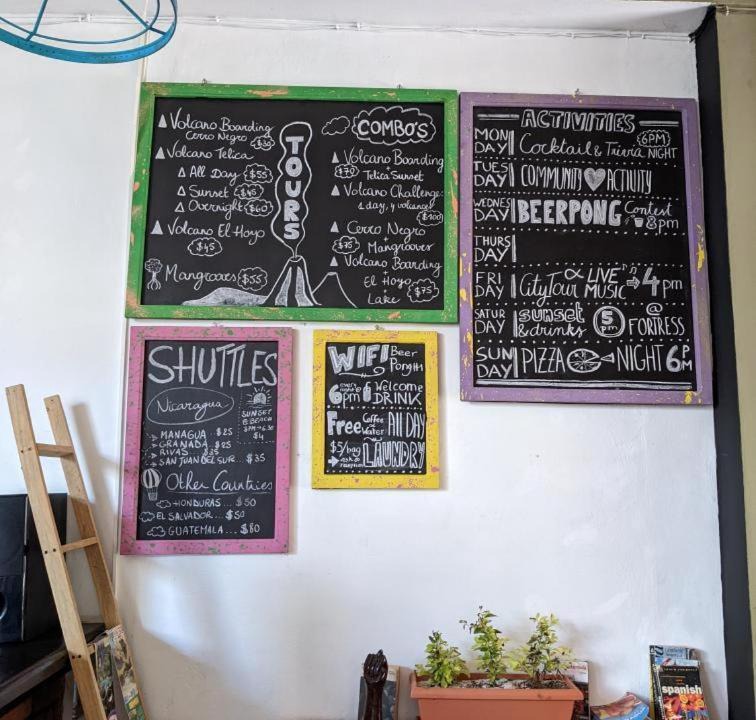 Volcano Boarding
Cerro Negro $30
Volcano Telica
All Day $55
Sunset $45
Overnight $60
Volcano El Hoyo
$45
Mangroves $55
TOURS
COMBO'S
Volcano Boarding
+
$70 Telica Sunset
Volcano Challenge:
1 day, 4 volcanoes
$100
Cerro Negro
+
$75 Mangrooves
Volcano Boarding
+
El Hoyo
Lake $75
ACTIVITIES
MON DAY Cocktail & Trivia NIGHT 6PM
TUES DAY COMMUNITY ACTIVITY
WEDNES DAY BEERPONG Contest 8pm
THURS DAY
FRI DAY City Tour LIVE MUSIC 4pm
SATUR DAY sunset & drinks 5pm @ FORTRESS
SUN DAY PIZZA NIGHT 6PM
SHUTTLES
Nicaragua
SUNSET
@ BEACH
$4
MANAGUA .. $25
GRANADA .. $25
RIVAS ... $35
SAN JUAN DEL SUR ... $35
Other Countries
HONDURAS ... $50
EL SALVADOR ... $50
GUATEMALA ... $80
WIFI Beer
6pm Welcome
DRINK
Free Coffee Water All DAY
$5/bag LAUNDRY
ask @ reception
spanish